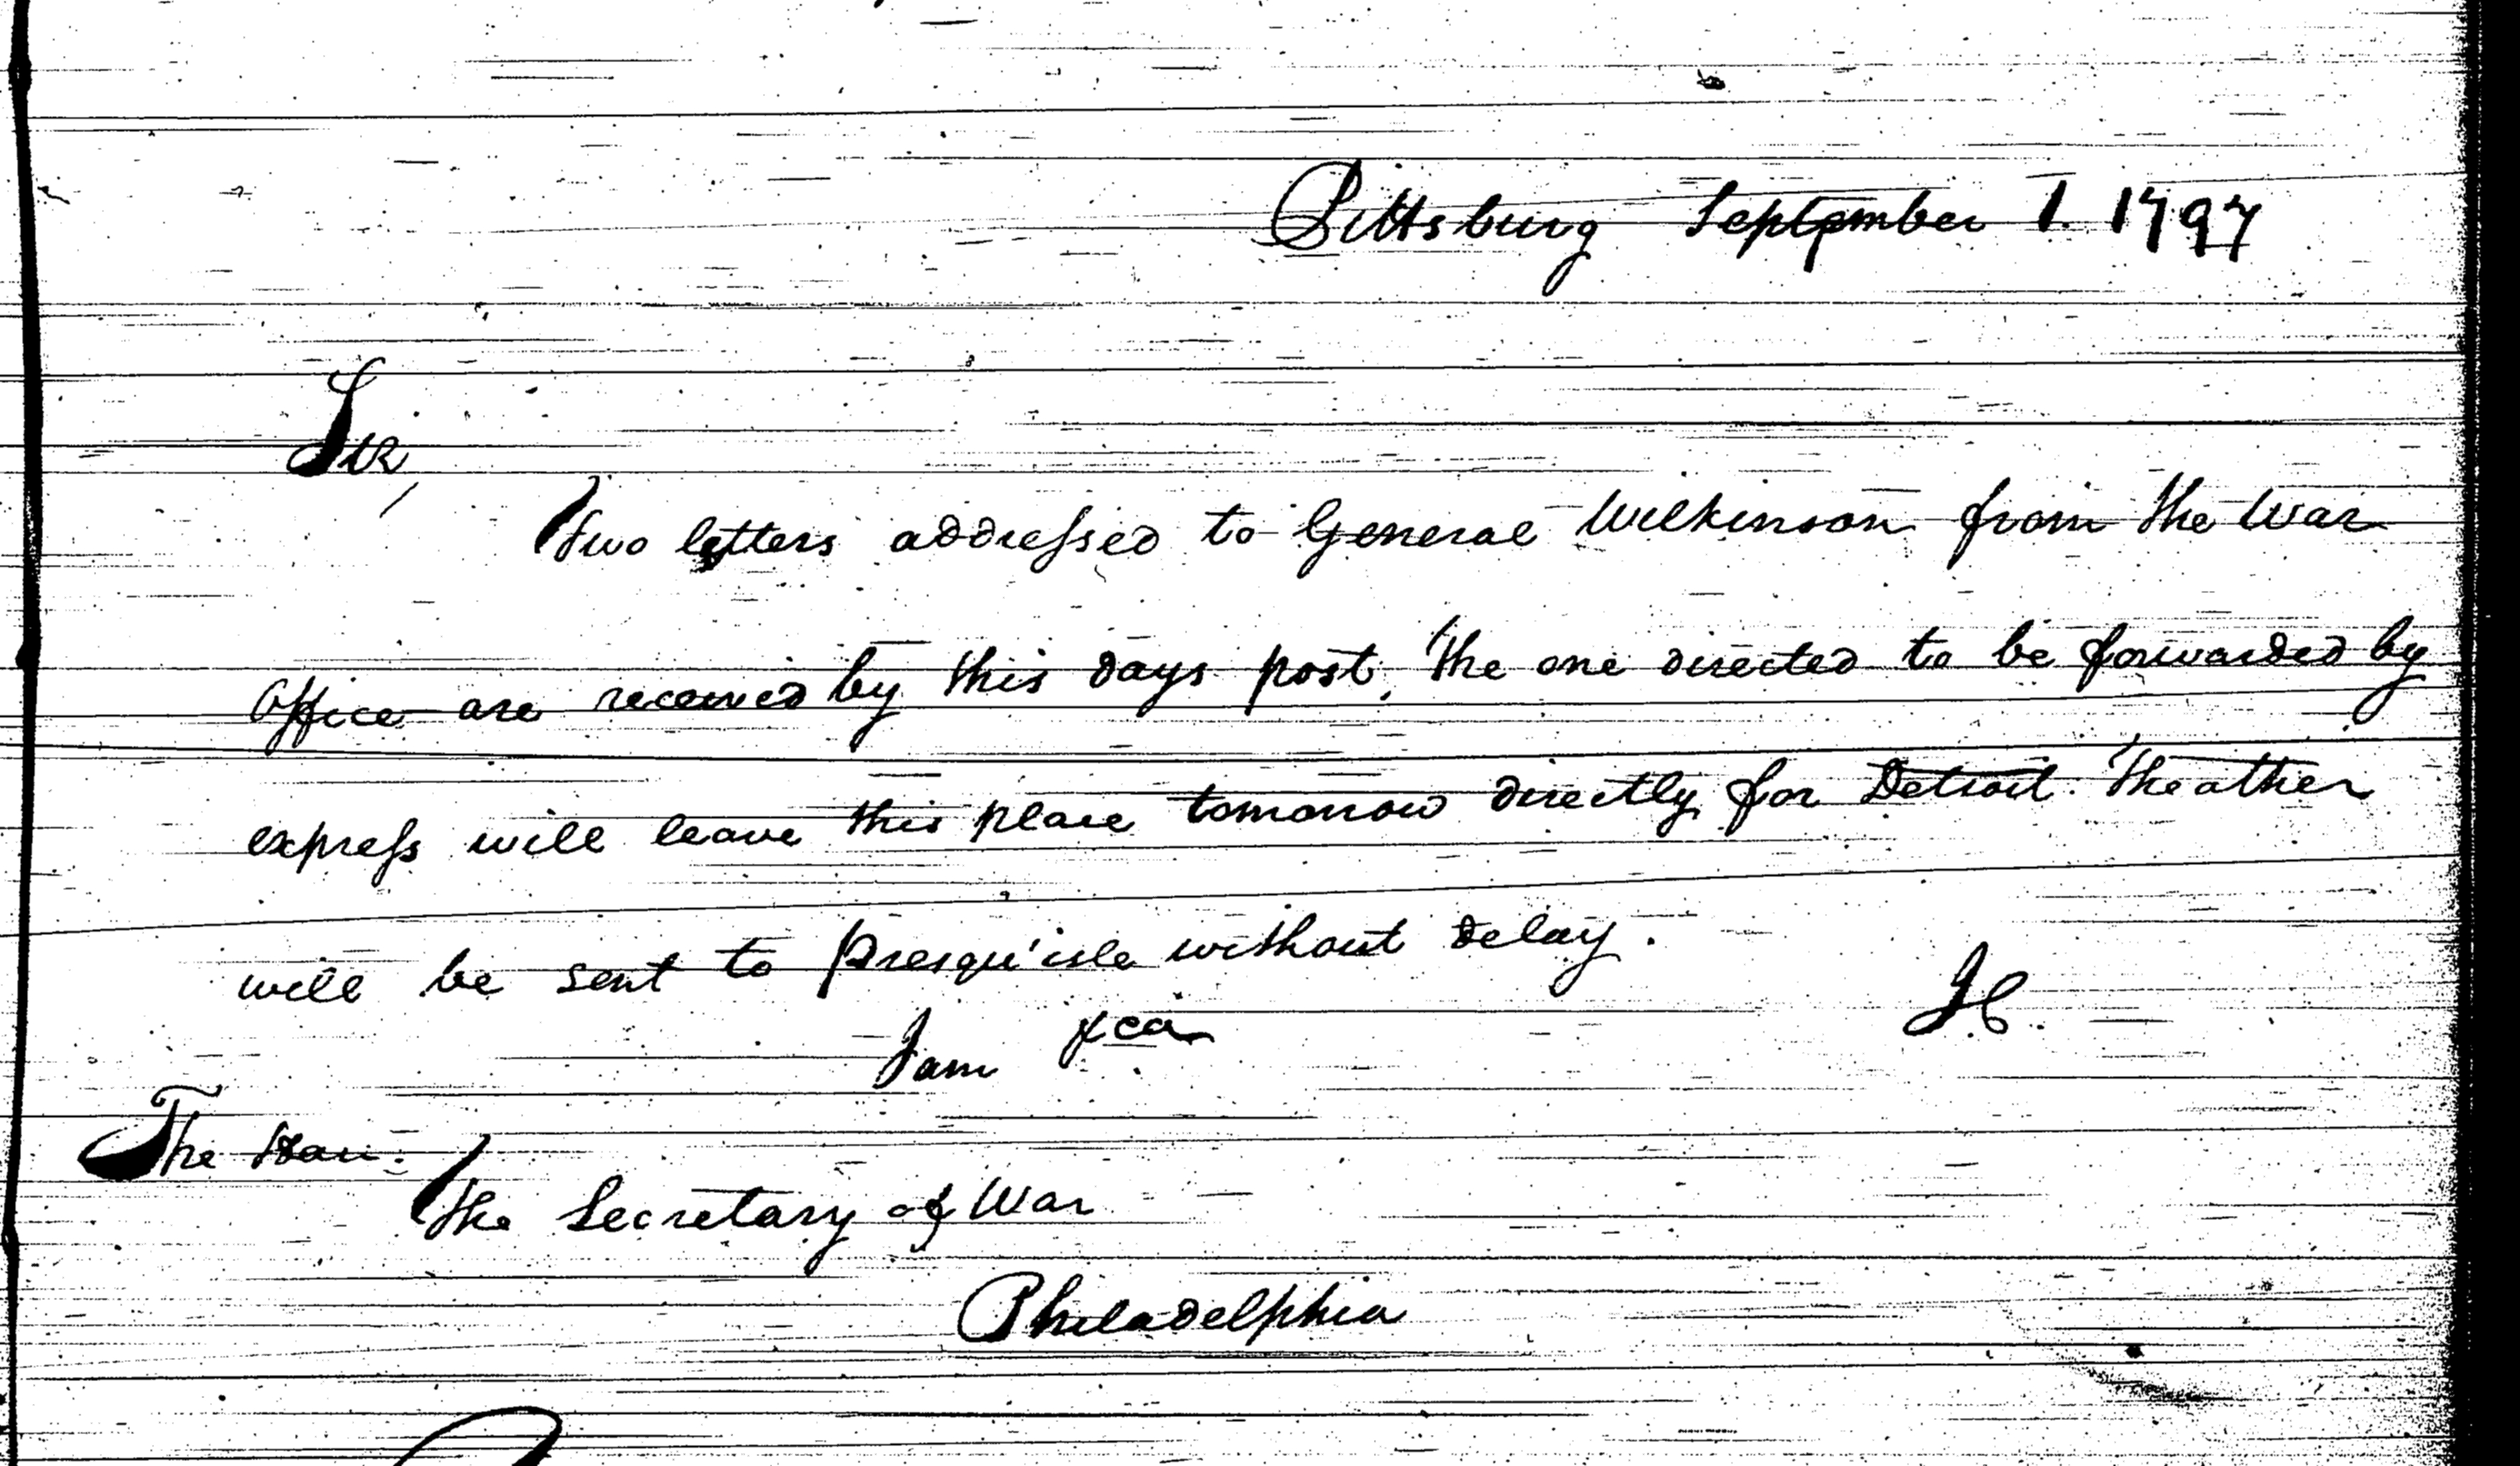 Pittsburg September 1. 1797
Sir,
Two letters addressed to General Wilkinson from the War
Office are received by this days post, The one directed to be forwarded by
express will leave this place tomorrow directly for Detroit. The other
will be sent to Presqu'isle without delay.
I am &ca
The Hon.
The Secretary of War
Philadelphia